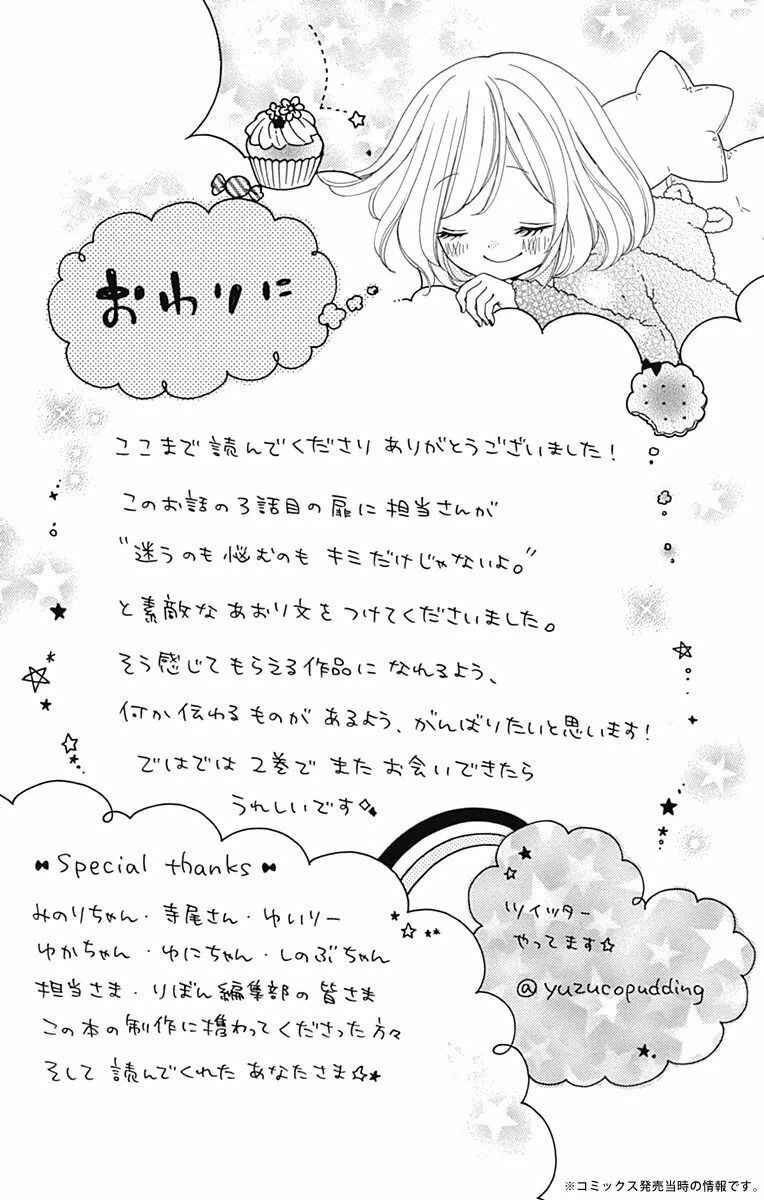 おわりに
ここまで読んでくださりありがとうございました！
このお話の3話目の扉に担当さんが
“迷うのも悩むのもキミだけじゃないよ。”
と素敵なあおり文をつけてくださいました。
そう感じてもらえる作品になれるよう、
何か伝わるものがあるよう、がんばりたいと思います！
ではでは2巻でまたお会いできたら
うれしいです
Special thanks
みのりちゃん・寺尾さん・ゆいりー
ゆかちゃん・ゆにちゃん・しのぶちゃん
担当さま・りぼん編集部の皆さま
この本の制作に携わってくださった方々
そして読んでくれたあなたさま☆★
ツイッター
やってます☆
@yuzucopudding
※コミックス発売当時の情報です。